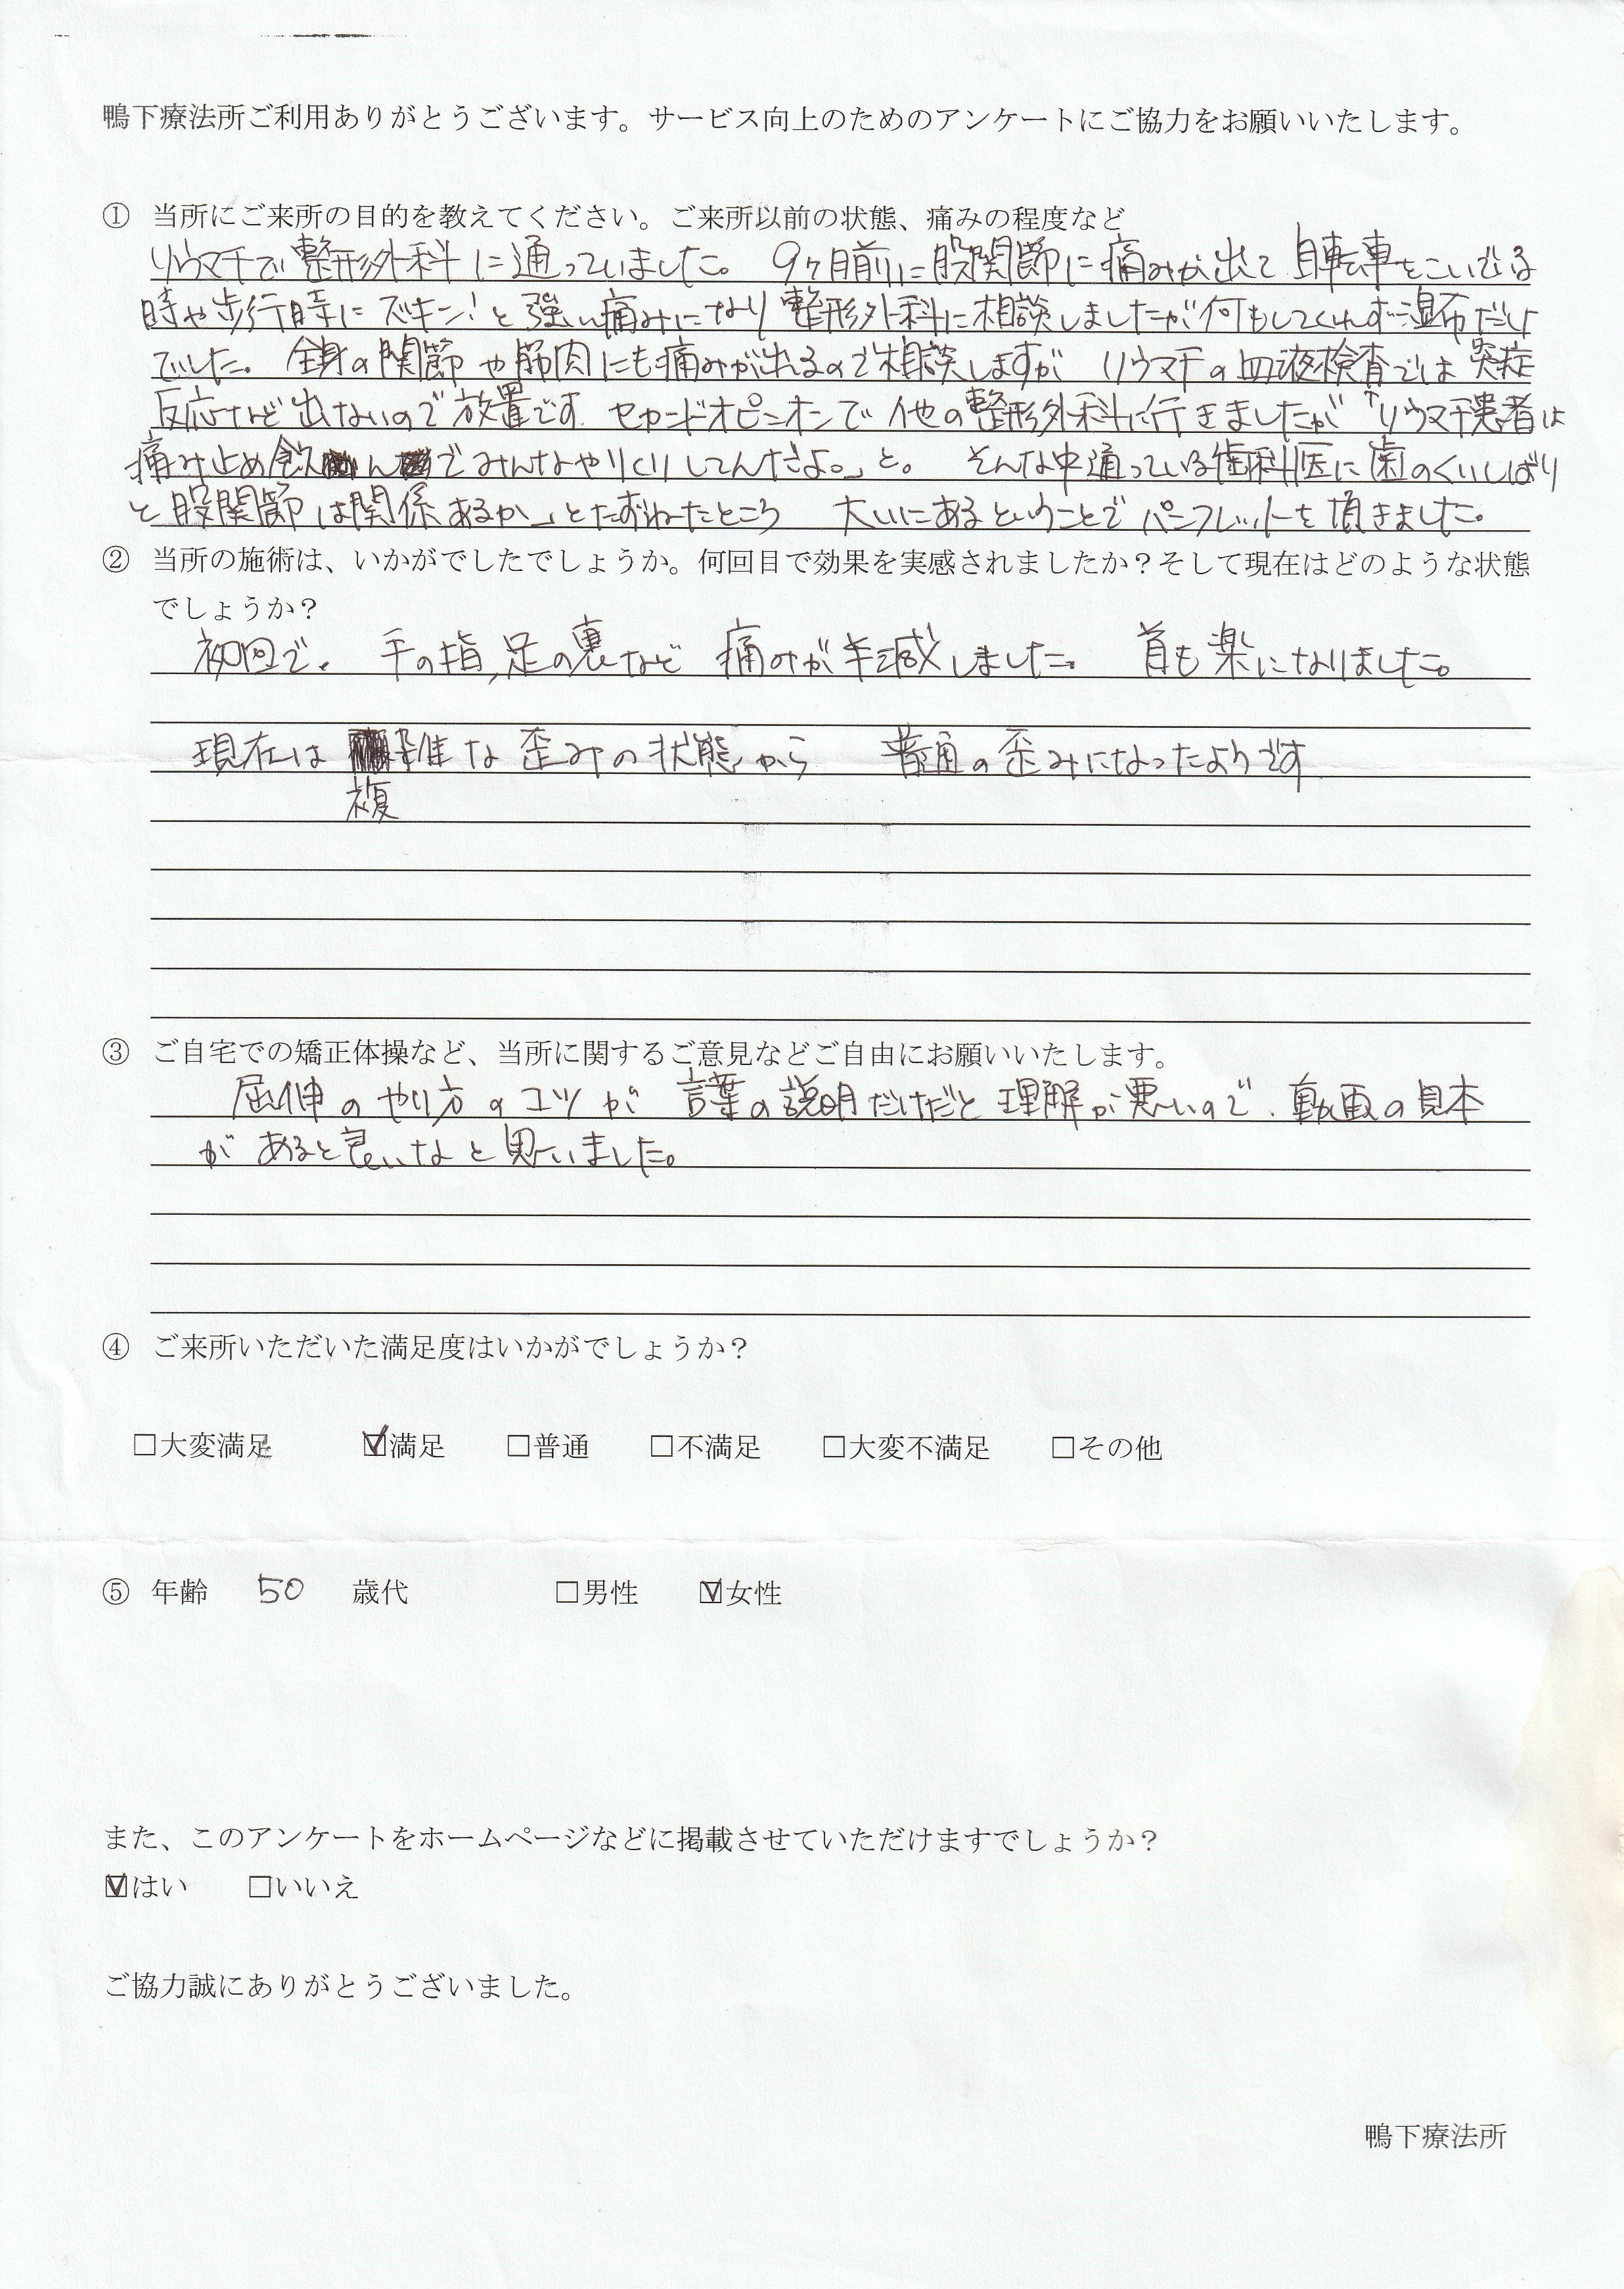 鴨下療法所ご利用ありがとうございます。サービス向上のためのアンケートにご協力をお願いいたします。
① 当所にご来所の目的を教えてください。ご来所以前の状態、痛みの程度など
リウマチで整形外科に通っていました。 9ヶ月前に股関節に痛みが出て自転車をこいでる
時や歩行時にズキン!と強い痛みになり整形外科に相談しましたが何もしてくれず湿布だけ
でした。 全身の関節や筋肉にも痛みが出るので相談しますが リウマチの血液検査では炎症
反応など出ないので放置です。セカンドオピニオンで他の整形外科に行きましたが「リウマチ患者は
痛み止め飲んでみんなやりくりしてんだよ。」と。 そんな中通っている歯科医に歯のくいしばり
と股関節は関係あるか」とたずねたところ 大いにあるということでパンフレットを頂きました。
② 当所の施術は、いかがでしたでしょうか。何回目で効果を実感されましたか？そして現在はどのような状態
でしょうか？
初回で。 手の指,足の裏など 痛みが半減しました。 首も楽になりました。
現在は 雑な歪みの状態から 普通の歪みになったようです
複
③ ご自宅での矯正体操など、当所に関するご意見などご自由にお願いいたします。
屈伸のやり方のコツが 言葉の説明だけだと理解が悪いので、動画の見本
があると良いなと思いました。
④ ご来所いただいた満足度はいかがでしょうか？
□大変満足 ☑満足 □普通 □不満足 □大変不満足 □その他
⑤ 年齢 50 歳代 □男性 ☑女性
また、このアンケートをホームページなどに掲載させていただけますでしょうか？
☑はい □いいえ
ご協力誠にありがとうございました。
鴨下療法所